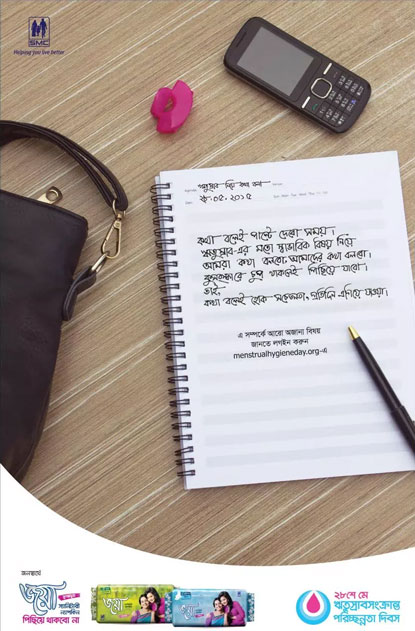 SMC
Helping you live better
ঋতুস্রাব নিয়ে কথা বলা
২৮.০৫.২০১৫
কথা বলেই পাল্টে দেবো সময়।
ঋতুস্রাব-এর মতো স্বাভাবিক বিষয় নিয়ে
আমরা কথা বলবো, আমাদের কথা বলবো।
কুসংস্কারে চুপ থাকলেই পিছিয়ে যাবো।
তাই,
কথা বলেই হোক সচেতনতা, প্রতিদিন এগিয়ে যাওয়া।
এ সম্পর্কে আরো অজানা বিষয়
জানতে লগইন করুন
menstrualhygieneday.org-এ
জনস্বার্থে
জয়া
স্যানিটারী
ন্যাপকিন
পিছিয়ে থাকবো না
জয়া
জয়া
২৮শে মে
ঋতুস্রাবসংক্রান্ত
পরিচ্ছন্নতা দিবস